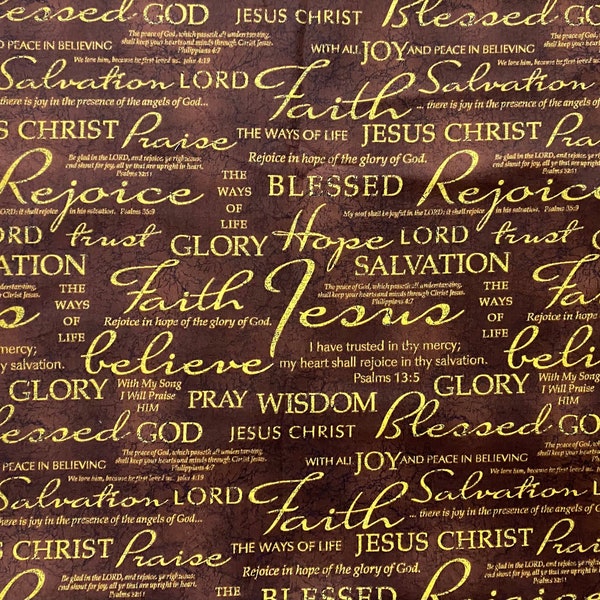 Blessed GOD
JESUS CHRIST
Blessed
The peace of God, which passeth all understanding,
shall keep your hearts and minds through Christ Jesus.
Philippians 4:7
WITH ALL JOY AND PEACE IN BELIEVING
We love him, because he first loved us. John 4:19
Salvation LORD
Faith
Salvation
... there is joy in the presence of the angels of God...
there is joy in the presence of the angels of God...
JESUS CHRIST Praise
THE WAYS OF LIFE JESUS CHRIST Praise
Be glad in the LORD, and rejoice, ye righteous:
and shout for joy, all ye that are upright in heart.
Psalms 32:11
Rejoice in hope of the glory of God.
Rejoice
THE
WAYS
OF
LIFE
BLESSED
Rejoice
LORD: it shall rejoice in his salvation. Psalms 35:9
My soul shall be joyful in the LORD: it shall rejoice in his salvation.
LORD trust
GLORY
Hope LORD trust
SALVATION
Faith
Jesus
SALVATION
The peace of God, which passeth all understanding,
shall keep your hearts and minds through Christ Jesus.
Philippians 4:7
THE
WAYS
OF
LIFE
THE
WAYS
OF
LIFE
Rejoice in hope of the glory of God.
mercy;
thy salvation.
believe
I have trusted in thy mercy;
my heart shall rejoice in thy salvation.
Psalms 13:5
believe
GLORY
With My Song
I Will Praise
HIM
PRAY WISDOM
GLORY
With My Song
I Will Praise
HIM
Blessed GOD
JESUS CHRIST
Blessed GOD
The peace of God, which passeth all understanding,
shall keep your hearts and minds through Christ Jesus.
Philippians 4:7
AND PEACE IN BELIEVING
WITH ALL JOY AND PEACE IN BELIEVING
We love him, because he first loved us. John 4:19
We love him, because he first loved us. John 4:19
Salvation LORD
Faith
Salvation
there is joy in the presence of the angels of God...
... there is joy in the presence of the angels of God...
JESUS CHRIST Praise
THE WAYS OF LIFE JESUS CHRIST Praise
Be glad in the LORD, and rejoice, ye righteous:
and shout for joy, all ye that are upright in heart.
Psalms 32:11
Rejoice in hope of the glory of God.
Rejoice
THE
WAYS
BLESSED
Rejoice